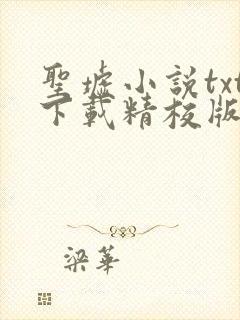 聖墟小説txt
下載精校版
梁華